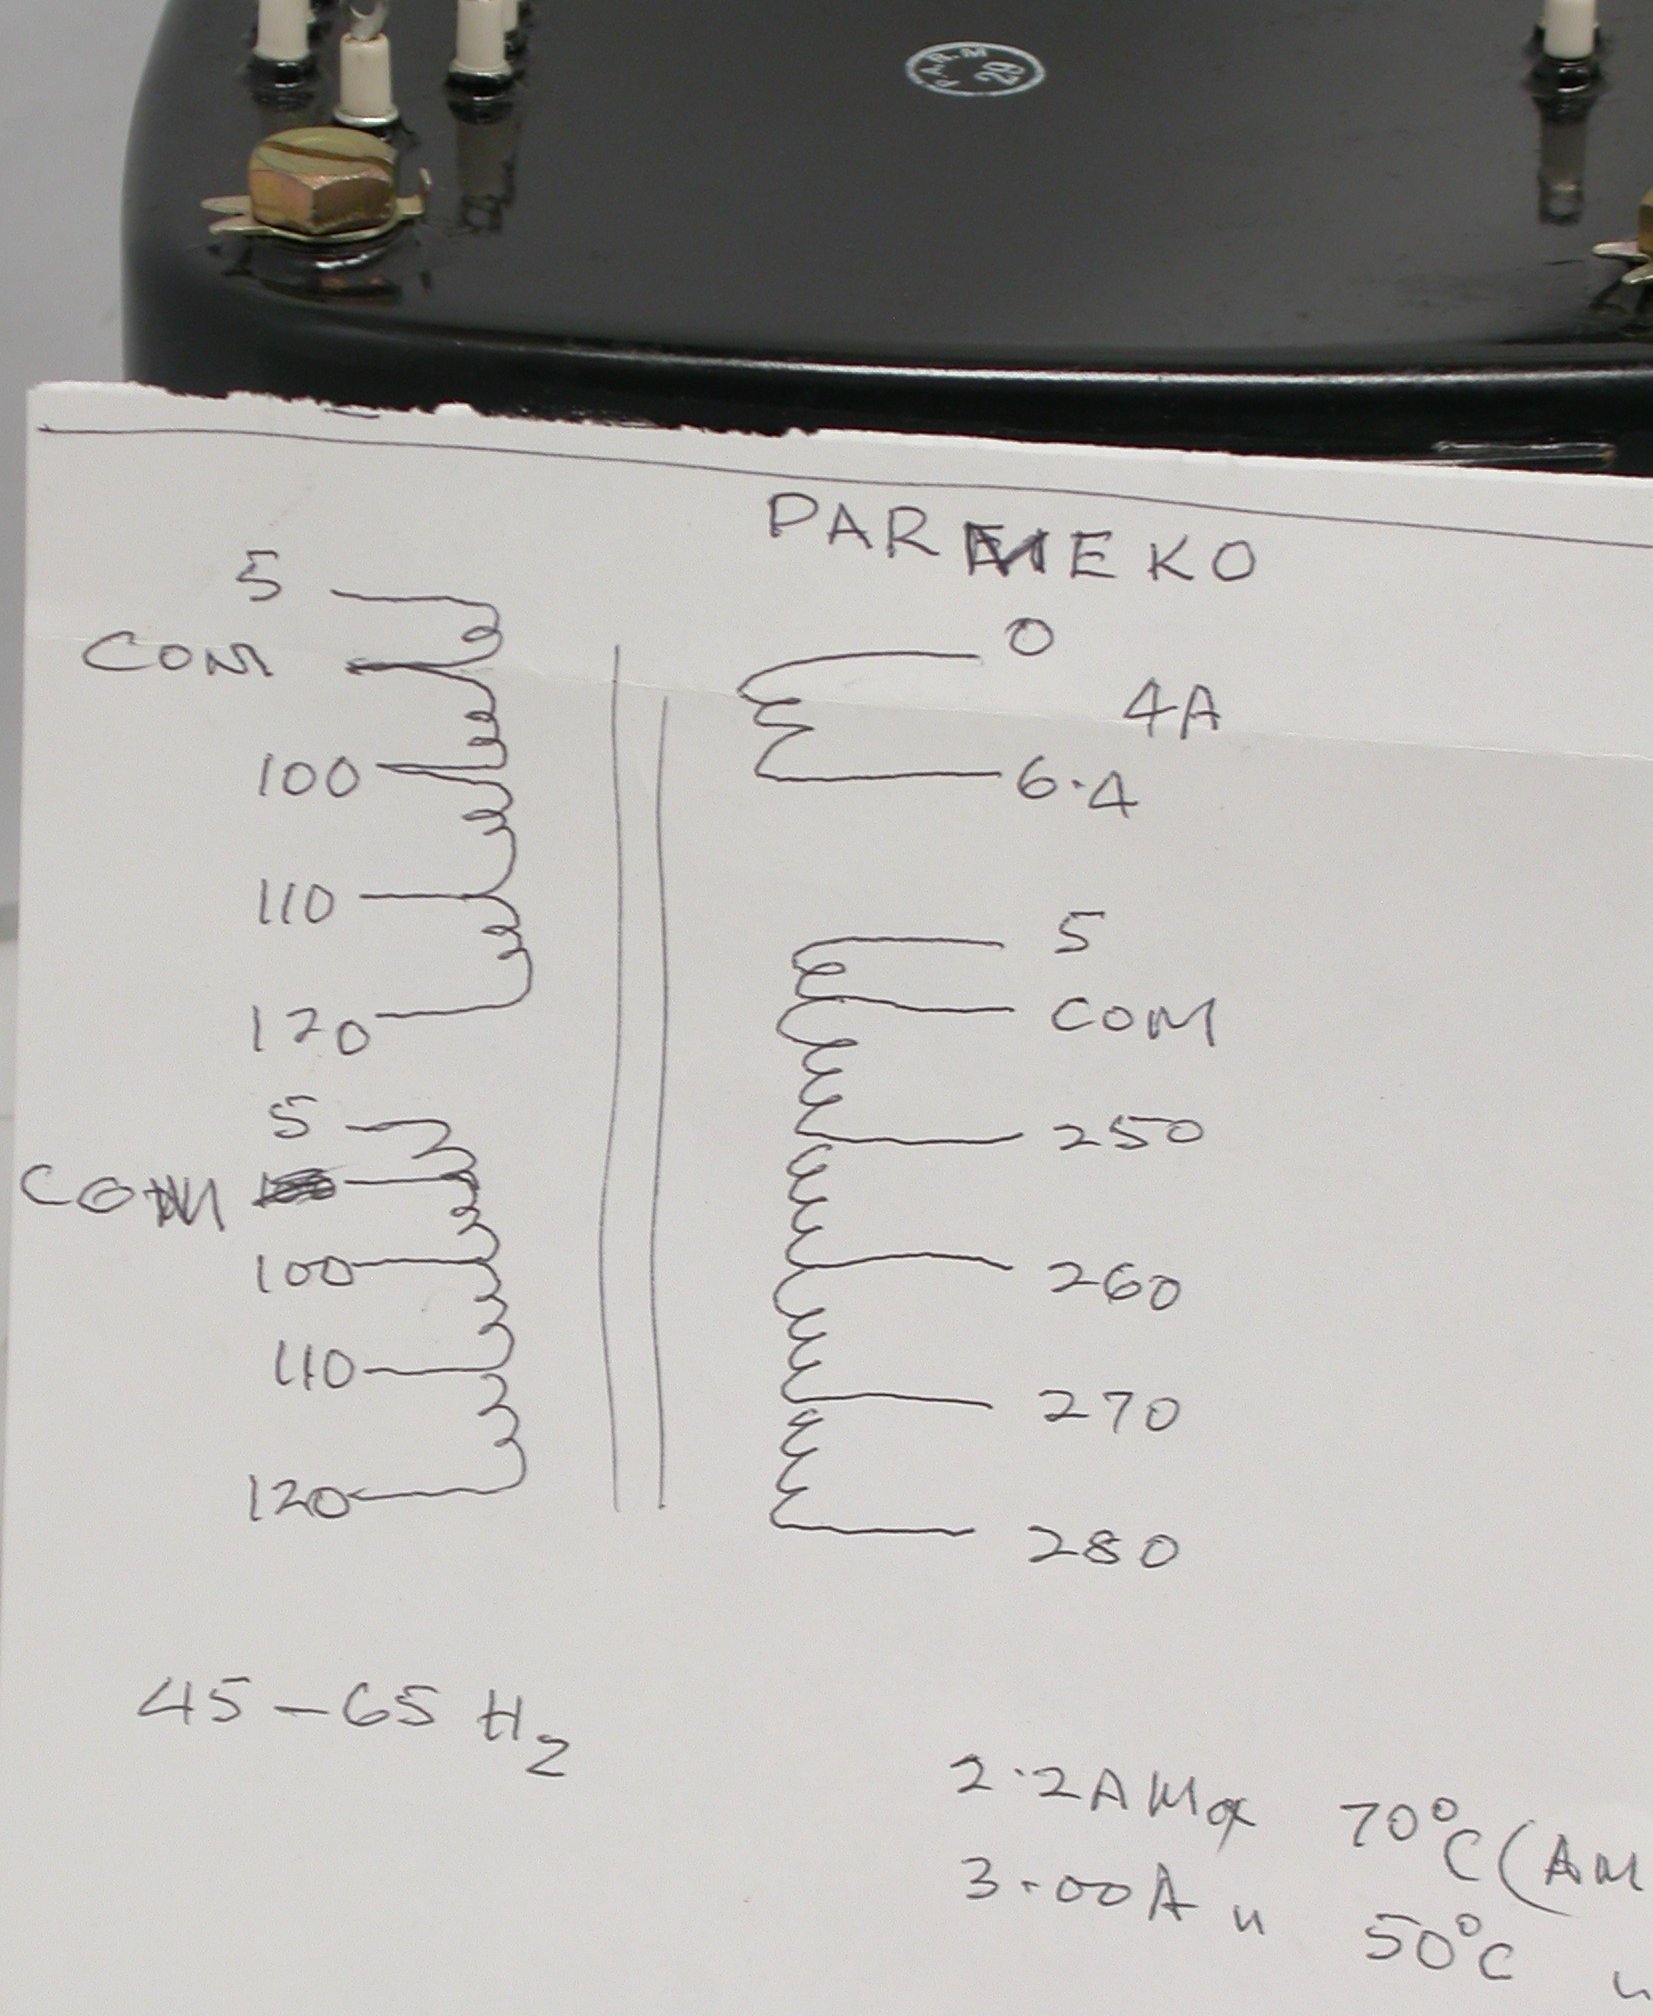 PARM 29
PARMEKO
5
COM
100
110
120
5
COM
100
110
120
0
4A
6.4
5
COM
250
260
270
280
45-65 Hz
2.2A Max 70°C (AM
3.00A " 50°C "